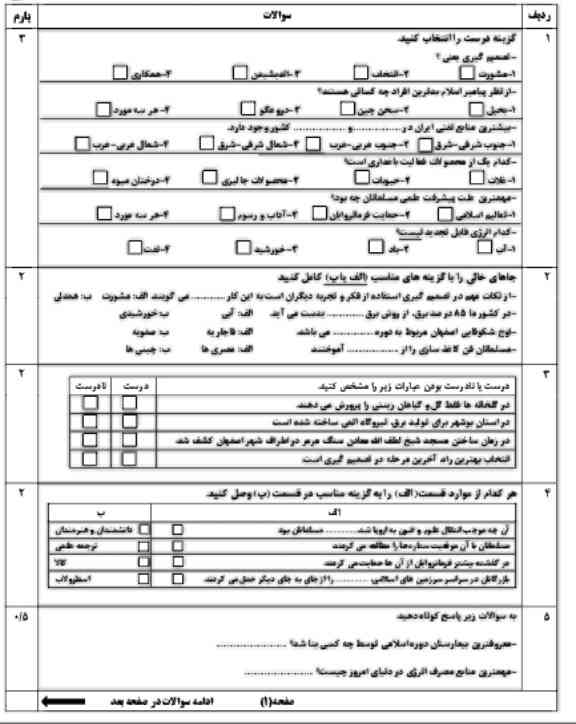 ردیف سوالات بارم
۱ گزینه درست را انتخاب کنید. ۳
-تصمیم گیری یعنی ؟
۱-مشورت ۲-انتخاب ۳-اندیشیدن ۴-همکاری
-از نظر پیامبر اسلام بدترین افراد چه کسانی هستند؟
۱-بخیل ۲-سخن چین ۳-دروغگو ۴-هر سه مورد
-بیشترین منابع نفتی ایران در .............. و .............. کشور وجود دارد.
۱-جنوب شرقی-شرق ۲-جنوب غربی-غرب ۳-شمال شرقی-شرق ۴-شمال غربی-غرب
-کدام یک از محصولات فعالیت باغداری است؟
۱-غلات ۲-حبوبات ۳-محصولات جالیزی ۴-درختان میوه
-مهمترین علت پیشرفت علمی مسلمانان چه بود؟
۱-تعالیم اسلامی ۲-حمایت فرمانروایان ۳-آداب و رسوم ۴-هر سه مورد
-کدام انرژی قابل تجدید نیست؟
۱-آب ۲-باد ۳-خورشید ۴-نفت
۲ جاهای خالی را با گزینه های مناسب (الف یا ب) کامل کنید. ۲
-از نکات مهم در تصمیم گیری استفاده از فکر و تجربه دیگران است به این کار .......... می گویند. الف: مشورت ب: همدلی
-در کشور ما ۸۵ درصد برق، از روش برق .......... بدست می آید. الف: آبی ب: خورشیدی
-اوج شکوفایی اصفهان مربوط به دوره .......... می باشد. الف: قاجاریه ب: صفویه
-مسلمانان فن کاغذ سازی را از .......... آموختند الف: مصری ها ب: چینی ها
۳ درست یا نادرست بودن عبارات زیر را مشخص کنید. درست نادرست ۲
در گلخانه ها فقط گل و گیاهان زینتی را پرورش می دهند.
در استان بوشهر برای تولید برق، نیروگاه اتمی ساخته شده است
در زمان ساختن مسجد شیخ لطف الله معادن سنگ مرمر در اطراف شهر اصفهان کشف شد.
انتخاب بهترین راه، آخرین مرحله در تصمیم گیری است.
۴ هر کدام از موارد قسمت (الف) را به گزینه مناسب در قسمت (ب) وصل کنید. ۲
الف ب
آن چه موجب انتقال علوم و فنون به اروپا شد .......... مسلمانان بود دانشمندان و هنرمندان
مسلمانان با آن موقعیت ستاره ها را مطالعه می کردند ترجمه علمی
در گذشته بیشتر فرمانروایان از آن ها حمایت می کردند کالا
بازرگانان در سراسر سرزمین های اسلامی، .......... را از جای به جای دیگر حمل می کردند. اسطرلاب
۵ به سوالات زیر پاسخ کوتاه دهید. ۰/۵
-معروفترین بیمارستان دوره اسلامی توسط چه کسی بنا شد؟ ..................
-مهمترین منابع مصرف انرژی در دنیای امروز چیست؟ ..................
صفحه(۱) ادامه سوالات در صفحه بعد